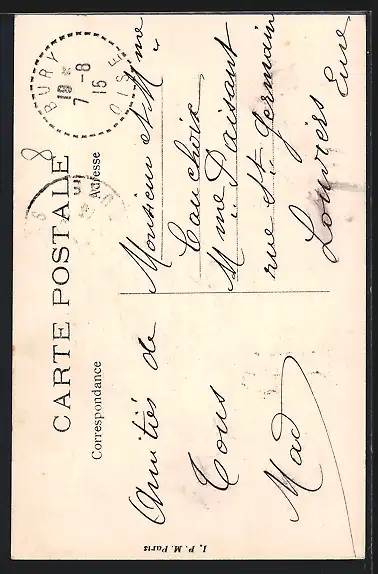 CARTE POSTALE
Correspondance
Adresse
BURY
7 8-8 15
OISE
8
Amitiés de
Tous
Mad
Monsieur et Mme
Cauchoix
Mme Daisant
rue St Germain
Louviers Eure
I. P. M. Paris